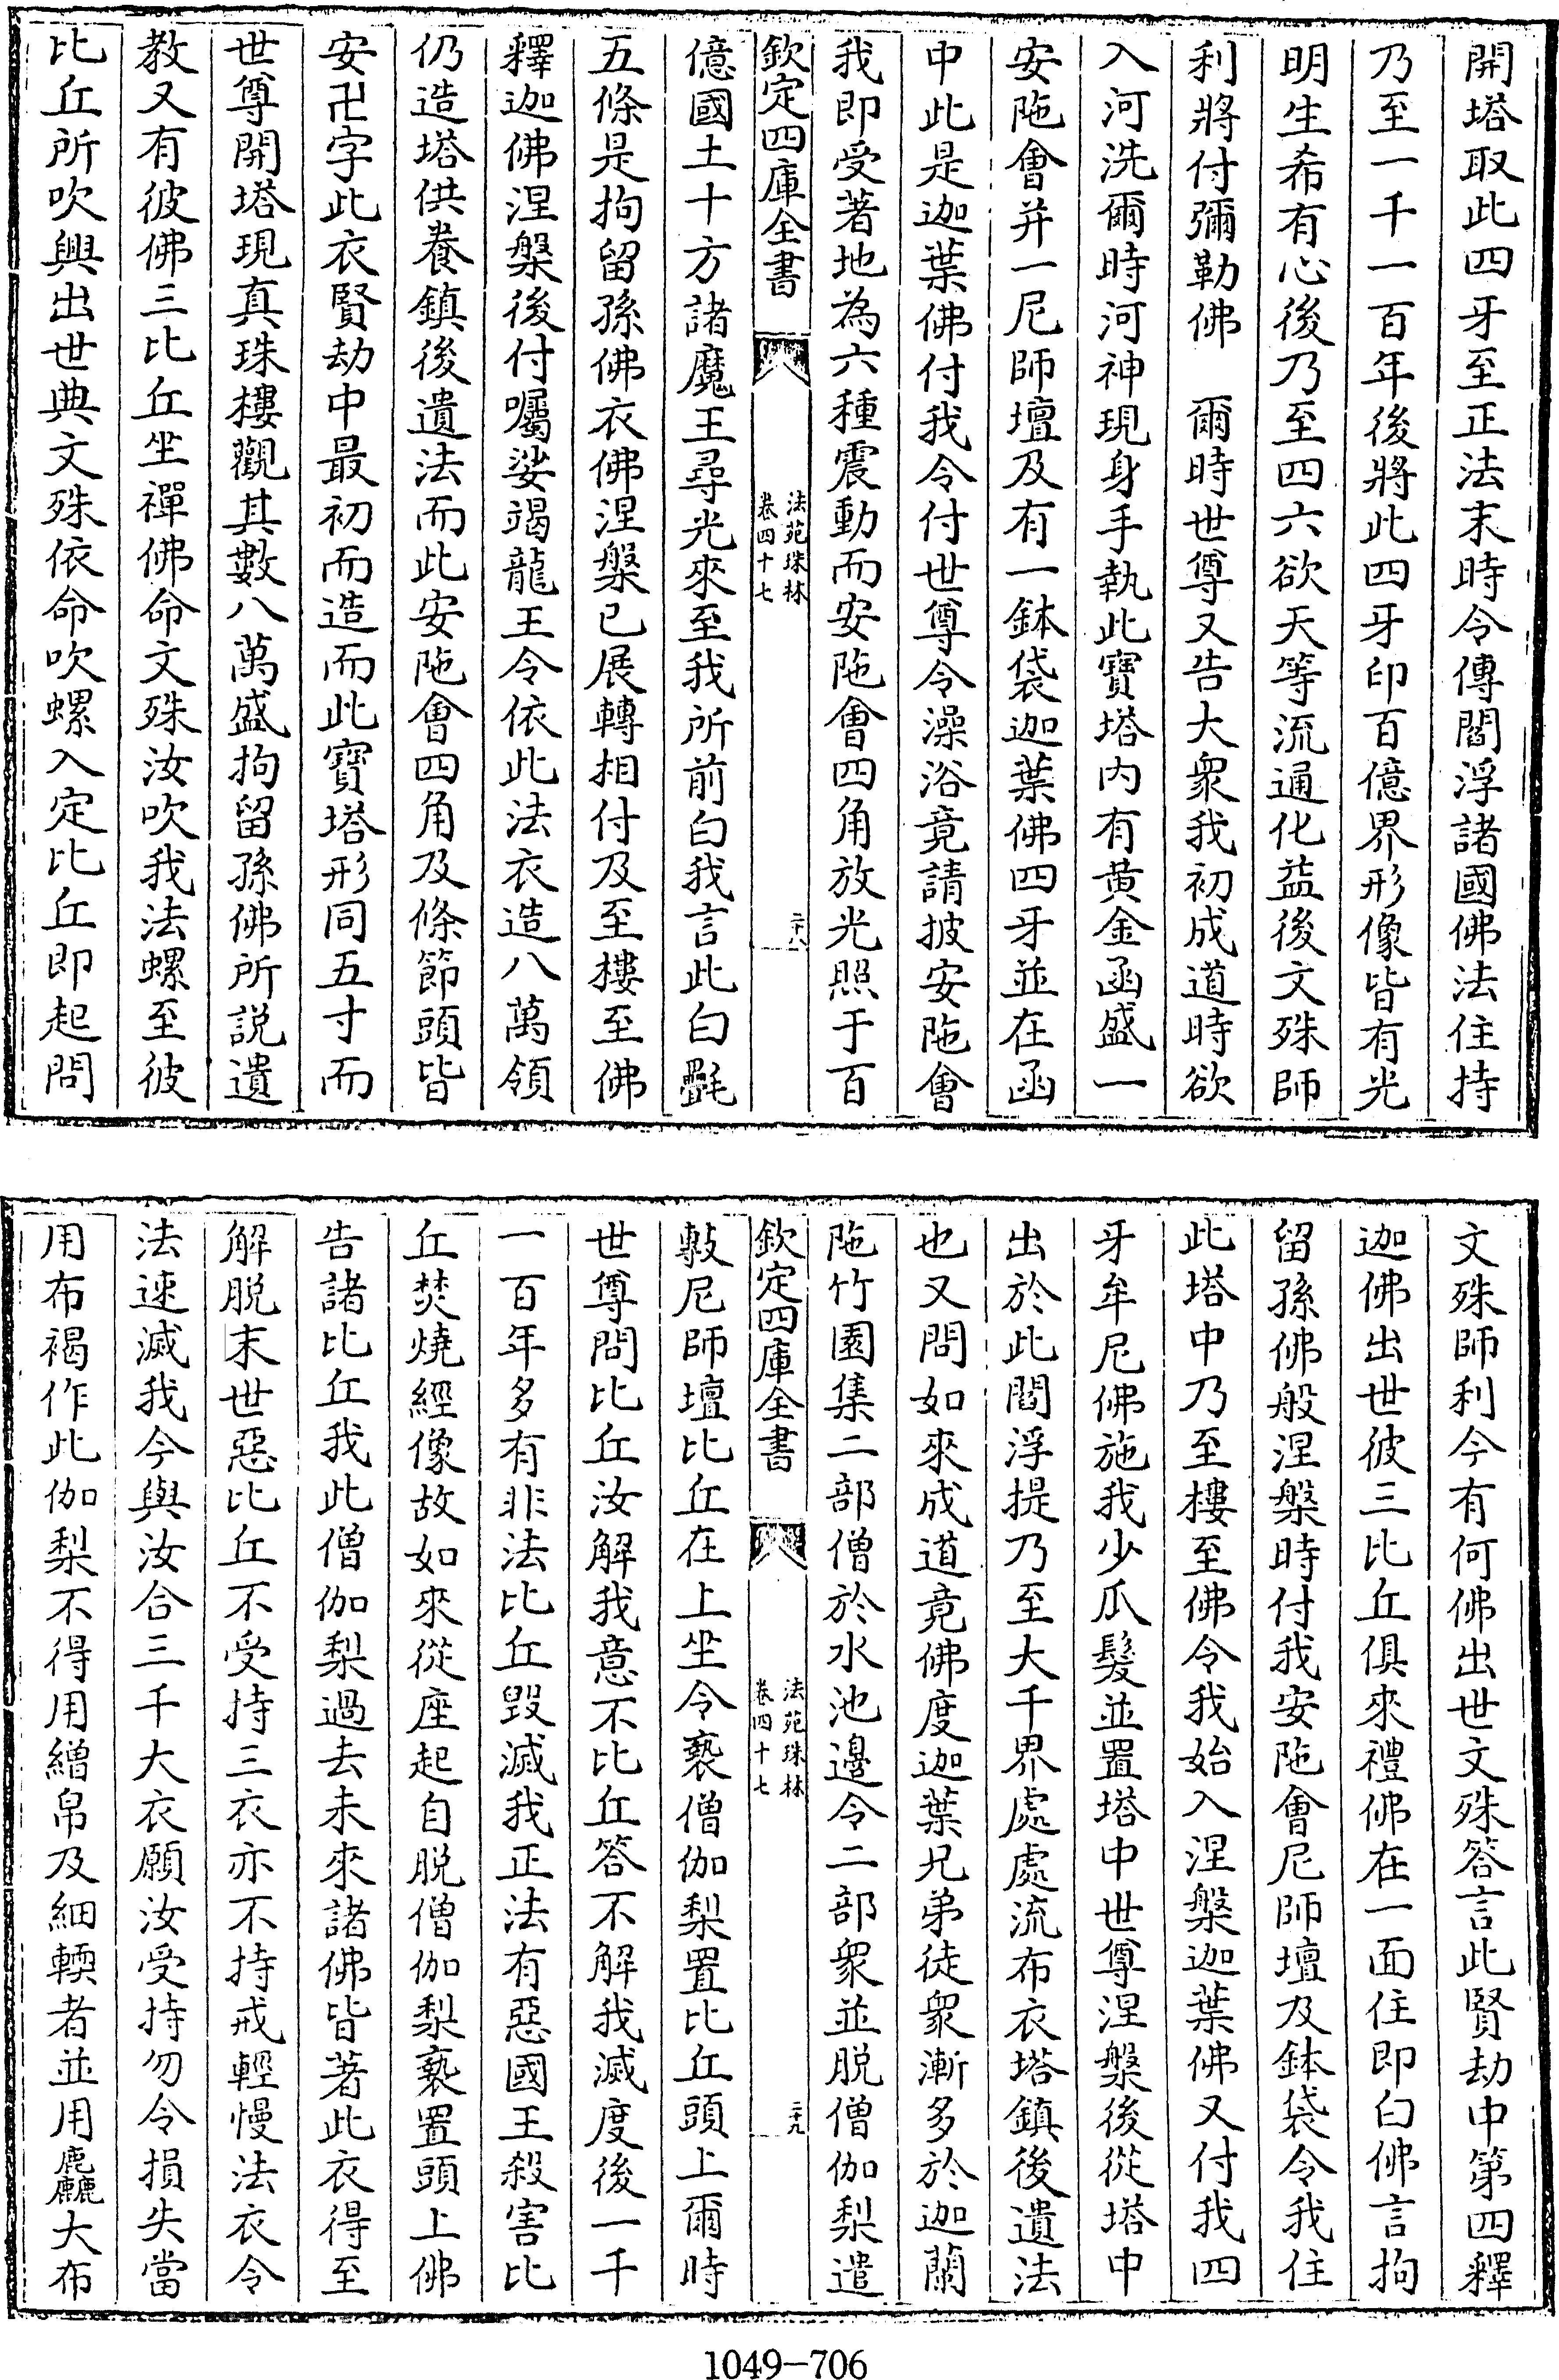 開塔取此四牙至正法末時令傳閻浮諸國佛法住持
乃至一千一百年後將此四牙印百億界形像皆有光
明生希有心後乃至四六欲天等流通化益後文殊師
利將付彌勒佛　爾時世尊又告大衆我初成道時欲
入河洗爾時河神現身手執此寶塔内有黄金函盛一
安陁會并一尼師壇及有一鉢袋迦葉佛四牙並在函
中此是迦葉佛付我令付世尊令澡浴竟請披安陁會
我即受著地為六種震動而安陁會四角放光照于百
欽定四庫全書
法苑珠林
卷四十七
二十八
億國土十方諸魔王尋光來至我所前白我言此白㲲
五條是拘留孫佛衣佛涅槃已展轉相付及至樓至佛
釋迦佛涅槃後付囑娑竭龍王令依此法衣造八萬領
仍造塔供養鎮後遺法而此安陁會四角及條節頭皆
安卍字此衣賢劫中最初而造而此寶塔形同五寸而
世尊開塔現真珠樓觀其數八萬盛拘留孫佛所説遺
教又有彼佛三比丘坐禪佛命文殊汝吹我法螺至彼
比丘所吹興出世典文殊依命吹螺入定比丘即起問
文殊師利今有何佛出世文殊答言此賢劫中第四釋
迦佛出世彼三比丘俱來禮佛在一面住即白佛言拘
留孫佛般涅槃時付我安陁會尼師壇及鉢袋令我住
此塔中乃至樓至佛令我始入涅槃迦葉佛又付我四
牙牟尼佛施我少爪髮並置塔中世尊涅槃後從塔中
出於此閻浮提乃至大千界處處流布衣塔鎮後遺法
也又問如來成道竟佛度迦葉兄弟徒衆漸多於迦蘭
陁竹園集二部僧於水池邊令二部衆並脱僧伽梨遣
欽定四庫全書
法苑珠林
卷四十七
二十九
敷尼師壇比丘在上坐令褻僧伽梨置比丘頭上爾時
世尊問比丘汝解我意不比丘答不解我滅度後一千
一百年多有非法比丘毁滅我正法有惡國王殺害比
丘焚燒經像故如來從座起自脱僧伽梨褻置頭上佛
告諸比丘我此僧伽梨過去未來諸佛皆著此衣得至
解脱末世惡比丘不受持三衣亦不持戒輕慢法衣令
法速滅我今與汝合三千大衣願汝受持勿令損失當
用布褐作此伽梨不得用繒帛及細輭者並用麤大布
1049-706